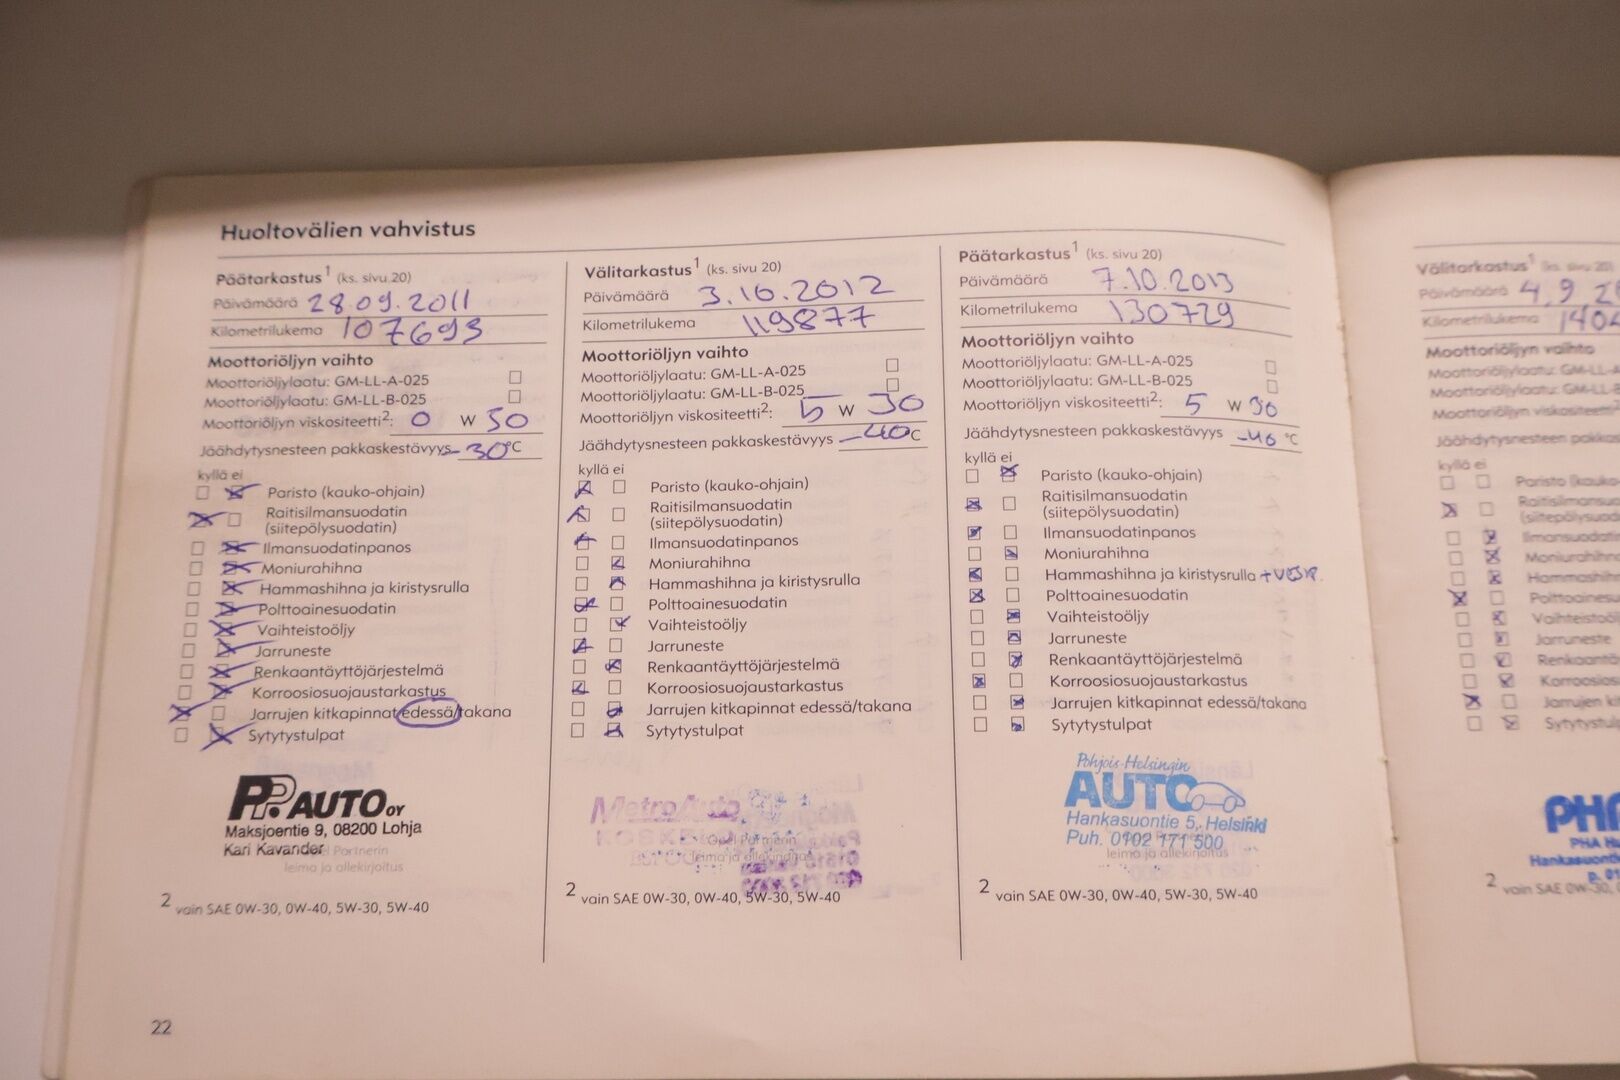 Huoltovälien vahvistus
Päätarkastus¹ (ks. sivu 20)
Päivämäärä 28.09.2011
Kilometrilukema 107693
Moottoriöljyn vaihto
Moottoriöljylaatu: GM-LL-A-025
Moottoriöljylaatu: GM-LL-B-025
Moottoriöljyn viskositeetti²: 0 W 30
Jäähdytysnesteen pakkaskestävyys -30°C
kyllä ei
Paristo (kauko-ohjain)
Raitisilmansuodatin
(siitepölysuodatin)
Ilmansuodatinpanos
Moniurahihna
Hammashihna ja kiristysrulla
Polttoainesuodatin
Vaihteistoöljy
Jarruneste
Renkaantäyttöjärjestelmä
Korroosiosuojaustarkastus
Jarrujen kitkapinnat edessä/takana
Sytytystulpat
PP.AUTO OY
Maksjoentie 9, 08200 Lohja
Kari Kavander Partnerin
leima ja allekirjoitus
2 vain SAE 0W-30, 0W-40, 5W-30, 5W-40
22
Välitarkastus¹ (ks. sivu 20)
Päivämäärä 3.10.2012
Kilometrilukema 119877
Moottoriöljyn vaihto
Moottoriöljylaatu: GM-LL-A-025
Moottoriöljylaatu: GM-LL-B-025
Moottoriöljyn viskositeetti²: 5 W 30
Jäähdytysnesteen pakkaskestävyys -40°C
kyllä ei
Paristo (kauko-ohjain)
Raitisilmansuodatin
(siitepölysuodatin)
Ilmansuodatinpanos
Moniurahihna
Hammashihna ja kiristysrulla
Polttoainesuodatin
Vaihteistoöljy
Jarruneste
Renkaantäyttöjärjestelmä
Korroosiosuojaustarkastus
Jarrujen kitkapinnat edessä/takana
Sytytystulpat
MetroAuto
Opel Partnerin
leima ja allekirjoitus
2 vain SAE 0W-30, 0W-40, 5W-30, 5W-40
Päätarkastus¹ (ks. sivu 20)
Päivämäärä 7.10.2013
Kilometrilukema 130729
Moottoriöljyn vaihto
Moottoriöljylaatu: GM-LL-A-025
Moottoriöljylaatu: GM-LL-B-025
Moottoriöljyn viskositeetti²: 5 W 30
Jäähdytysnesteen pakkaskestävyys -40 °C
kyllä ei
Paristo (kauko-ohjain)
Raitisilmansuodatin
(siitepölysuodatin)
Ilmansuodatinpanos
Moniurahihna
Hammashihna ja kiristysrulla
Polttoainesuodatin
Vaihteistoöljy
Jarruneste
Renkaantäyttöjärjestelmä
Korroosiosuojaustarkastus
Jarrujen kitkapinnat edessä/takana
Sytytystulpat
Pohjois-Helsingin
AUTO
Hankasuontie 5, Helsinki
Puh. 0102 171 500
leima ja allekirjoitus
2 vain SAE 0W-30, 0W-40, 5W-30, 5W-40
Välitarkastus¹ (ks. sivu 20)
Päivämäärä 4.9.2
Kilometrilukema 140
Moottoriöljyn vaihto
Moottoriöljylaatu: GM-LL-A
Moottoriöljylaatu: GM-LL-B
Moottoriöljyn viskositeetti
Jäähdytysnesteen pakkas
kyllä ei
Paristo (kauko
Raitisilmansuo
(siitepölysuod
Ilmansuodatin
Moniurahihna
Hammashihna
Polttoainesuo
Vaihteistoöl
Jarruneste
Renkaantäy
Korroosiosu
Jarrujen ki
Sytytystul
PHA
PHA H
Hankasuont
2 vain SAE 0W-30,